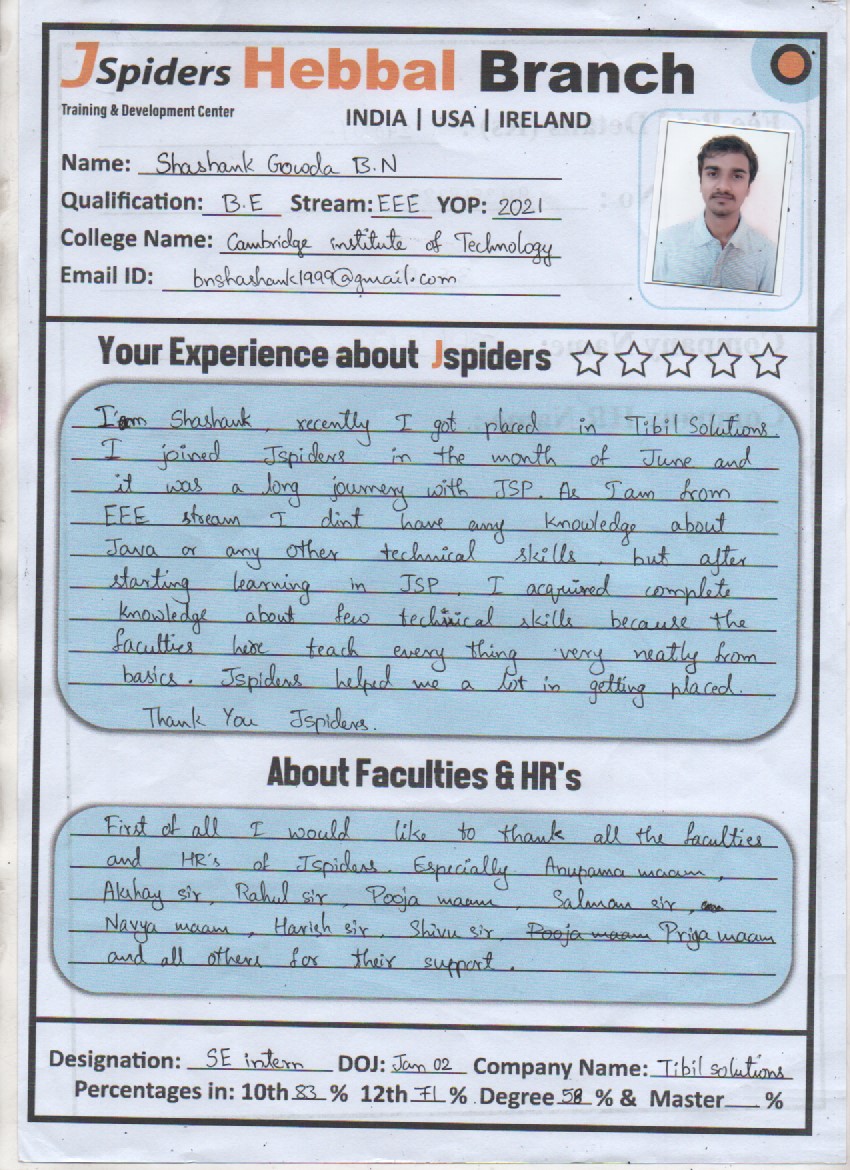 JSpiders Hebbal Branch
Training & Development Center
INDIA | USA | IRELAND
Name: Shashank Gowda B.N
Qualification: B.E Stream: EEE YOP: 2021
College Name: Cambridge institute of Technology
Email ID: bnshashank1999@gmail.com
Your Experience about Jspiders
I am Shashank, recently I got placed in Tibil Solutions.
I joined Jspiders in the month of June and
it was a long journery with JSP. As I am from
EEE stream I dint have any knowledge about
Java or any other technical skills, but after
starting learning in JSP, I acquired complete
knowledge about few technical skills because the
faculties here teach every thing very neatly from
basics. Jspiders helped me a lot in getting placed.
Thank You Jspiders.
About Faculties & HR's
First of all I would like to thank all the faculties
and HR's of Jspiders. Especially Anupama maam,
Akshay sir, Rahul sir, Pooja maam, Salman sir,
Navya maam, Harish sir, Shivu sir, Pooja maam Priya maam
and all others for their support.
Designation: SE intern DOJ: Jan 02 Company Name: Tibil solutions
Percentages in: 10th 83 % 12th 71 % Degree 58 % & Master %